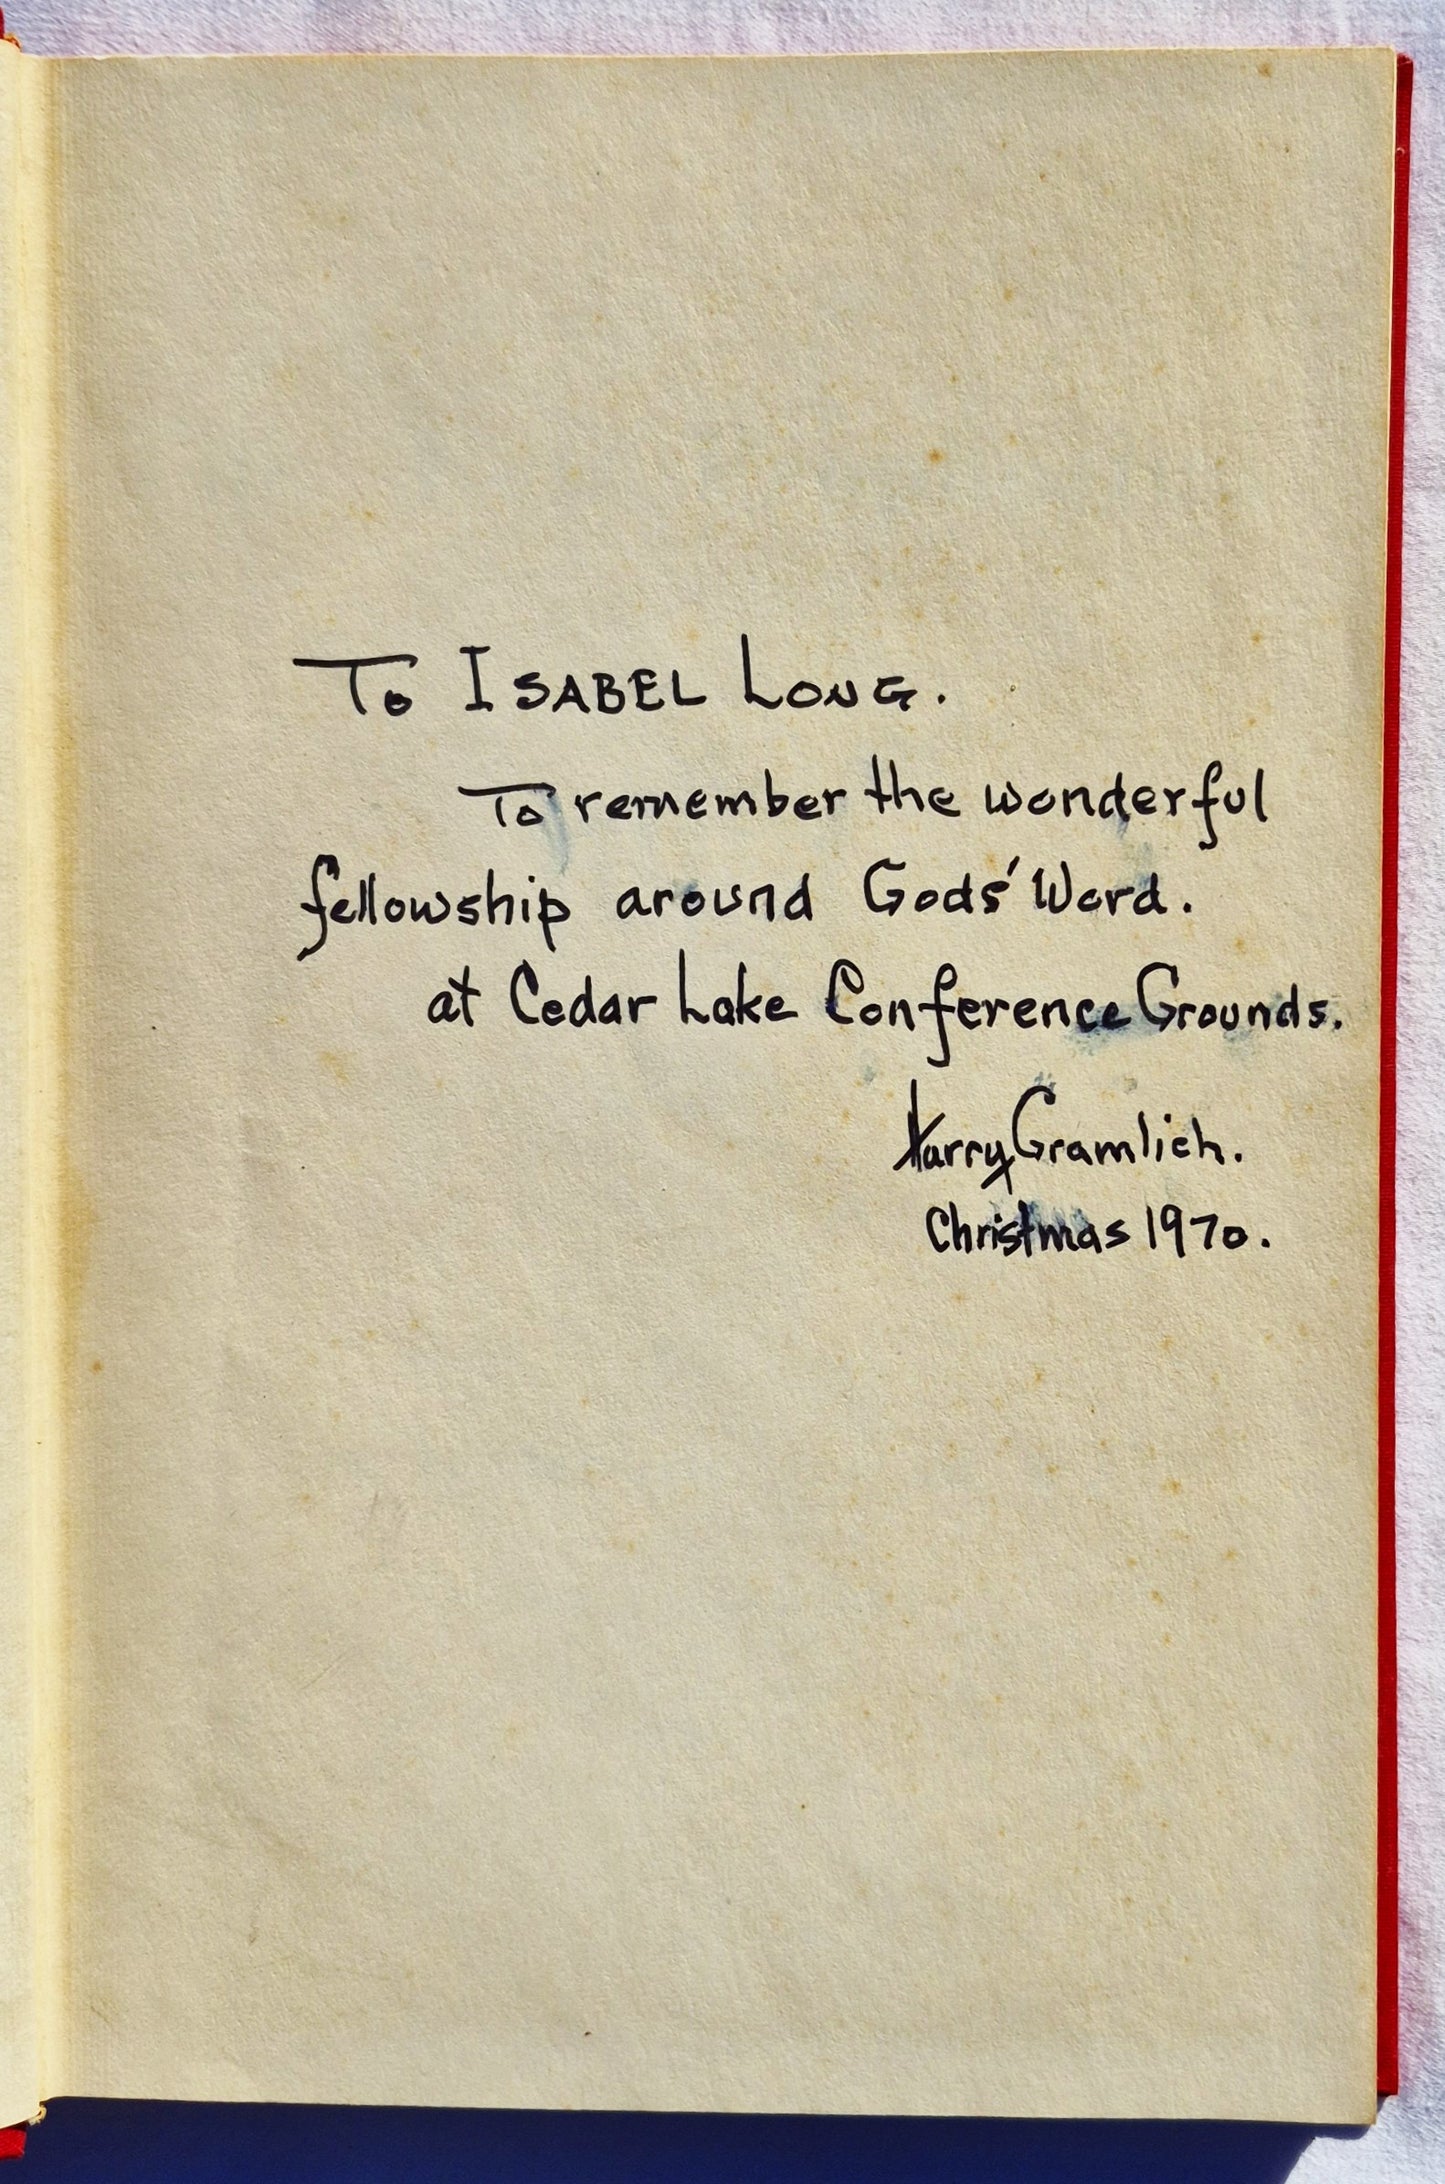 To ISABEL LONG.
To remember the wonderful
fellowship around Gods' Word.
at Cedar Lake Conference Grounds.
Harry Gramlich.
Christmas 1970.